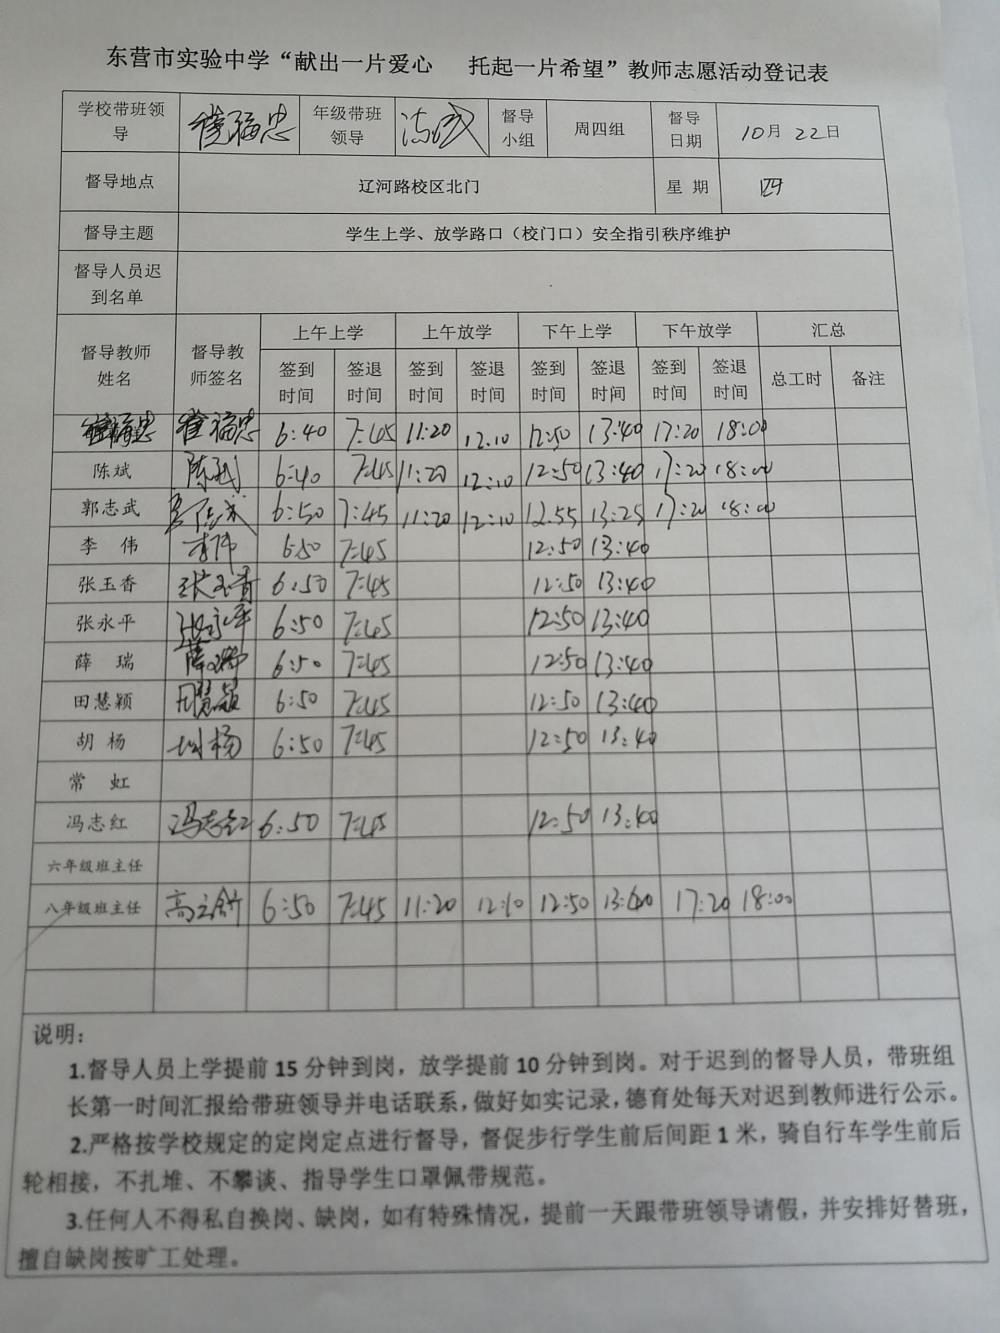 东营市实验中学“献出一片爱心 托起一片希望”教师志愿活动登记表
学校带班领导 崔福忠 年级带班领导 督导小组 周四组 督导日期 10月22日
督导地点 辽河路校区北门 星 期 四
督导主题 学生上学、放学路口（校门口）安全指引秩序维护
督导人员迟到名单
督导教师姓名 督导教师签名 上午上学 上午放学 下午上学 下午放学 汇总
签到时间 签退时间 签到时间 签退时间 签到时间 签退时间 签到时间 签退时间 总工时 备注
崔福忠 崔福忠 6:40 7:45 11:20 12:10 12:50 13:40 17:20 18:00
陈斌 陈斌 6:40 7:45 11:20 12:10 12:50 13:40 17:20 18:00
郭志武 郭志武 6:50 7:45 11:20 12:10 12:55 13:25 17:20 18:00
李 伟 李伟 6:50 7:45 12:50 13:40
张玉香 张玉香 6:50 7:45 12:50 13:40
张永平 张永平 6:50 7:45 12:50 13:40
薛 瑞 薛瑞 6:50 7:45 12:50 13:40
田慧颖 田慧颖 6:50 7:45 12:50 13:40
胡 杨 胡杨 6:50 7:45 12:50 13:40
常 虹
冯志红 冯志红 6:50 7:45 12:50 13:40
六年级班主任
八年级班主任 高立舒 6:50 7:45 11:20 12:10 12:50 13:40 17:20 18:00
说明：
1.督导人员上学提前 15 分钟到岗，放学提前 10 分钟到岗。对于迟到的督导人员，带班组
长第一时间汇报给带班领导并电话联系，做好如实记录，德育处每天对迟到教师进行公示。
2.严格按学校规定的定岗定点进行督导，督促步行学生前后间距 1 米，骑自行车学生前后
轮相接，不扎堆、不攀谈、指导学生口罩佩带规范。
3.任何人不得私自换岗、缺岗，如有特殊情况，提前一天跟带班领导请假，并安排好替班，
擅自缺岗按旷工处理。